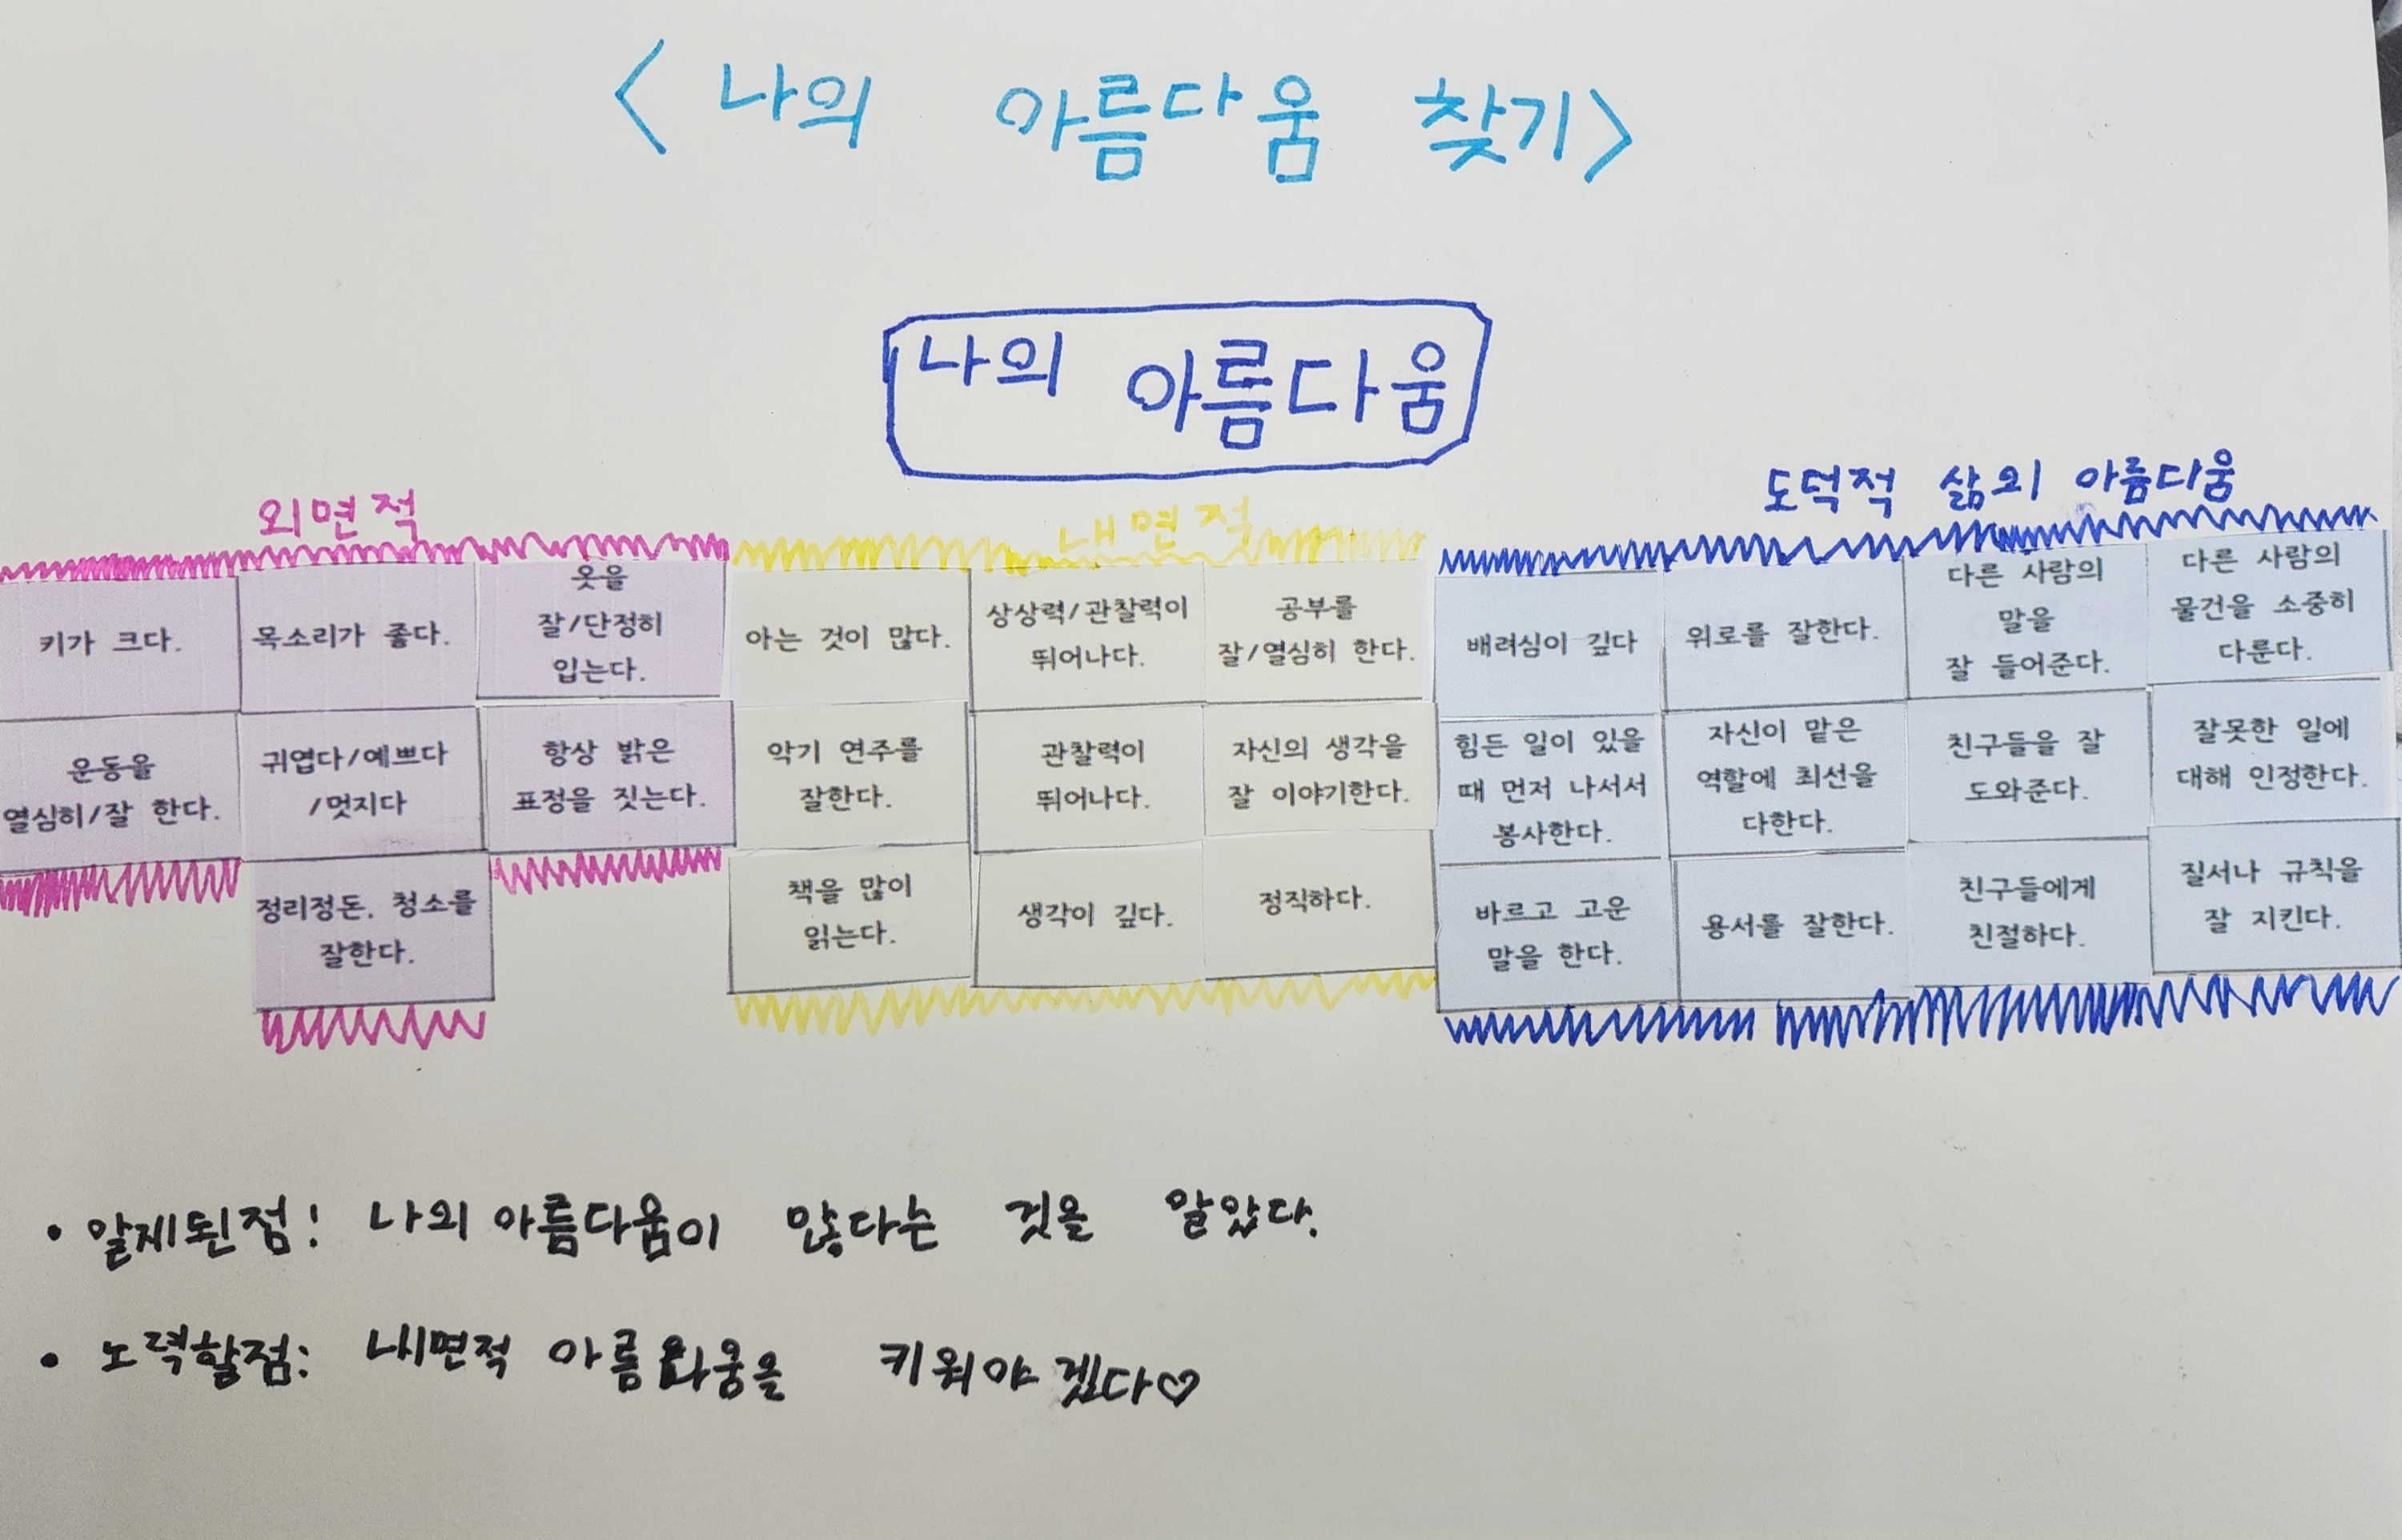 < 나의 아름다움 찾기>
나의 아름다움
외면적
키가 크다.
목소리가 좋다.
옷을
잘/단정히
입는다.
운동을
열심히/잘 한다.
귀엽다/예쁘다
/멋지다
항상 밝은
표정을 짓는다.
정리정돈, 청소를
잘한다.
내면적
아는 것이 많다.
상상력/관찰력이
뛰어나다.
공부를
잘/열심히 한다.
악기 연주를
잘한다.
관찰력이
뛰어나다.
자신의 생각을
잘 이야기한다.
책을 많이
읽는다.
생각이 깊다.
정직하다.
도덕적 삶의 아름디움
배려심이 깊다
위로를 잘한다.
다른 사람의
말을
잘 들어준다.
다른 사람의
물건을 소중히
다룬다.
힘든 일이 있을
때 먼저 나서서
봉사한다.
자신이 맡은
역할에 최선을
다한다.
친구들을 잘
도와준다.
잘못한 일에
대해 인정한다.
바르고 고운
말을 한다.
용서를 잘한다.
친구들에게
친절하다.
질서나 규칙을
잘 지킨다.
• 알게된점! 나의 아름다움이 많다는 것을 알았다.
• 노력할점: 내면적 아름다움을 키워야 겠다♡